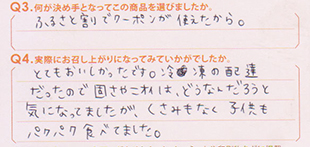 Q3.何が決め手となってこの商品を選びましたか。
ふるさと割りでクーポンが使えたから。
Q4.実際にお召し上がりになってみていかがでしたか。
とてもおいしかったです。冷凍の配達
だったので固さやニオイは、どうなんだろうと
気になってましたが、くさみもなく子供も
パクパク食べてました。